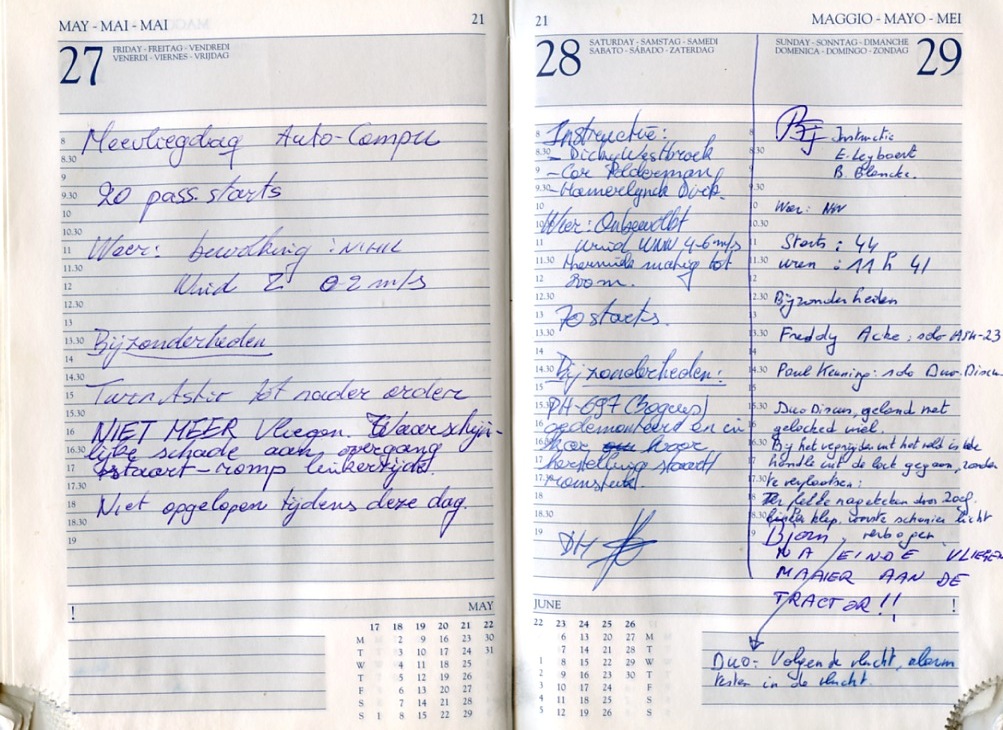 MAY - MAI - MAI
21
27
FRIDAY - FREITAG - VENDREDI
VENERDI - VIERNES - VRIJDAG
8 Meevliegdag Auto-Compu
8.30
9
9.30 20 pass. starts
10
10.30
11 Weer: bewolking : NIHIL
11.30
12 Wind Z 0-2 m/s
12.30
13
13.30 Bijzonderheden
14
14.30
15 Twin Astir tot nader order
15.30
16 NIET MEER Vliegen. Waarschijn-
16.30 lijke schade aan overgang
17 staart-romp linkerzijde.
17.30
18 Niet opgelopen tijdens deze dag.
18.30
19
!
MAY
17 18 19 20 21 22
M 2 9 16 23 30
T 3 10 17 24 31
W 4 11 18 25
T 5 12 19 26
F 6 13 20 27
S 7 14 21 28
S 1 8 15 22 29
21
28
SATURDAY - SAMSTAG - SAMEDI
SABATO - SÁBADO - ZATERDAG
8 Instructie:
8.30 - Dicky Westbroek
9 - Cor
9.30 - Hamerlynck Dirk.
10
10.30 Weer: Onbewolkt
11 wind WNW 4-6 m/s
11.30 thermiek matig tot
12 800m.
12.30
13 70 starts.
13.30
14
14.30 Bijzonderheden:
15
15.30 PH-697
16 gedemonteerd en in
16.30 voor
17 herstelling staart
17.30
18
18.30
19 PH
JUNE
22 23 24 25 26
6 13 20 27 M
7 14 21 28 T
1 8 15 22 29 W
2 9 16 23 30 T
3 10 17 24 F
4 11 18 25 S
5 12 19 26 S
MAGGIO - MAYO - MEI
SUNDAY - SONNTAG - DIMANCHE
DOMENICA - DOMINGO - ZONDAG
29
Instructie
E. Leybaert
B. Blencke.
Weer: NW
Starts : 44
uren : 11 h 41
Bijzonderheden
Freddy Acke : solo ASK-23
Paul Keuning: solo Duo-Discus
Duo Discus, geland met
gelocked wiel.
Bij het wegrijden uit het veld is de
hendle uit de lock gegaan, zonder
te verplaatsen:
Ter helde nagekeken door
linker klep, voorste schanier licht
verbogen
Bjorn,
NA EINDE VLIEGEN
MAAIER AAN DE
TRACTOR!!
!
Duo: Volgende vlucht, alarm
testen in de vlucht.